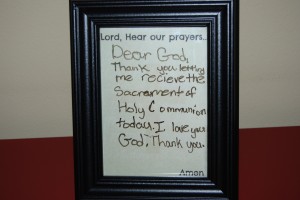 Lord, Hear our prayers...
Dear God,
Thank you letting
me recieve the
Sacrament of
Holy Communion
today. I love you
God, Thank you.
Amen